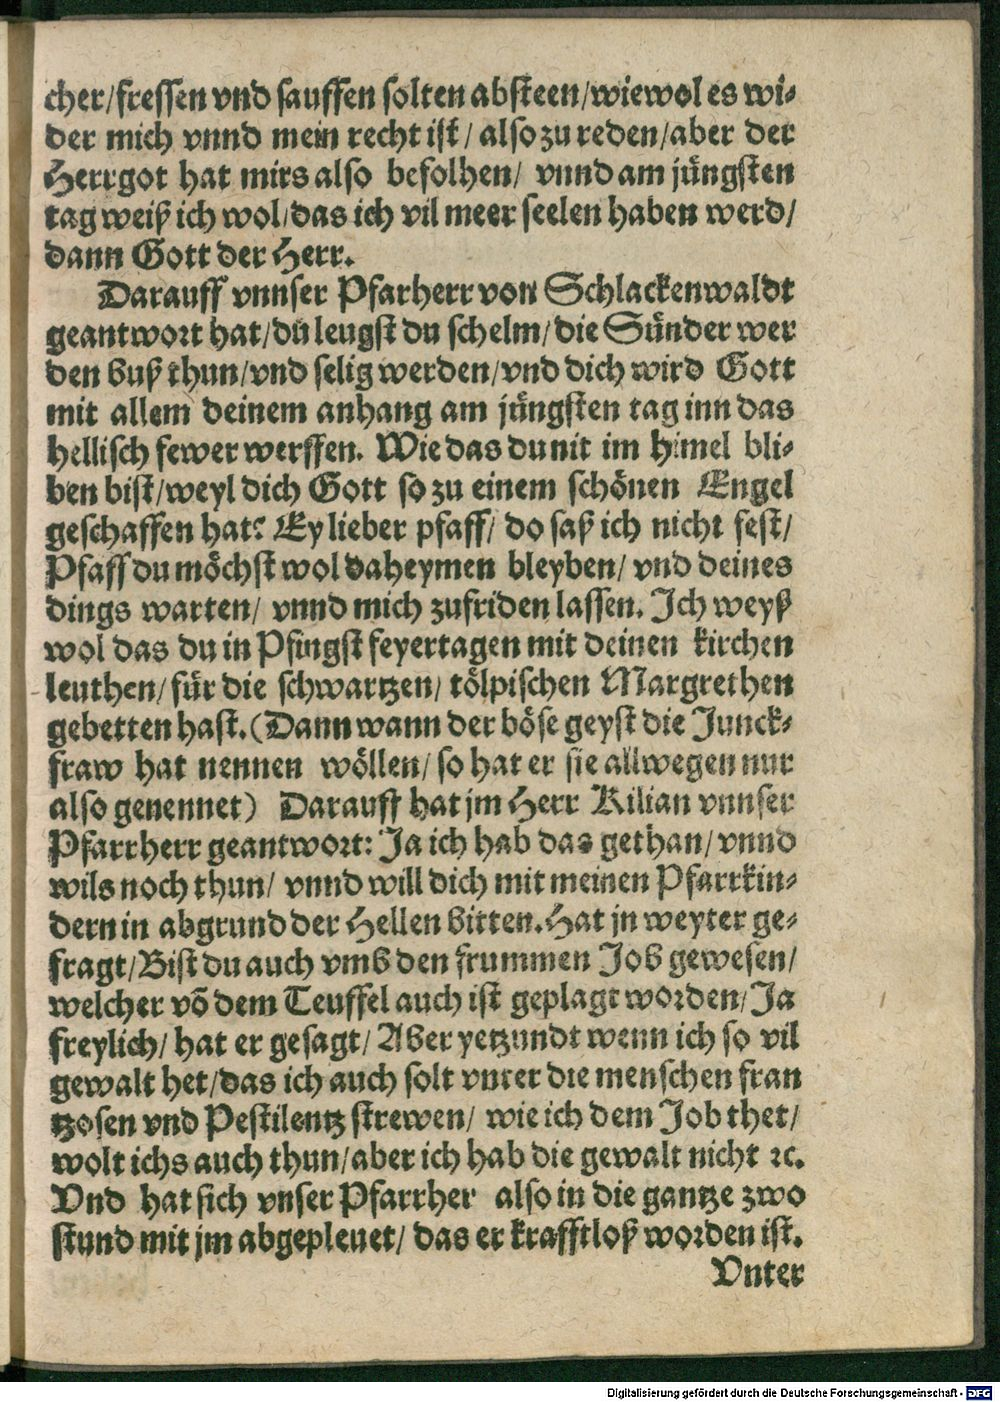 cher/fressen vnd sauffen solten absteen/wiewol es wi-
der mich vnnd mein recht ist/ also zu reden/aber der
Herrgot hat mirs also befolhen/ vnnd am jüngsten
tag weiß ich wol/das ich vil meer seelen haben werd/
dann Gott der Herr.
Darauff vnnser Pfarherr von Schlackenwaldt
geantwort hat/du leugst du schelm/die Sünder wer
den buß thun/vnd selig werden/vnd dich wird Gott
mit allem deinem anhang am jüngsten tag inn das
hellisch fewer werffen. Wie das du nit im himel bli-
ben bist/weyl dich Gott so zu einem schönen Engel
geschaffen hat? Ey lieber pfaff/ do saß ich nicht fest/
Pfaff du möchst wol daheymen bleyben/ vnd deines
dings warten/ vnnd mich zufriden lassen. Ich weyß
wol das du in Pfingst feyertagen mit deinen kirchen
leuthen/für die schwartzen/ tölpischen Margrethen
gebetten hast.(Dann wann der böse geyst die Junck-
fraw hat nennen wöllen/ so hat er sie allwegen nur
also genennet) Darauff hat jm Herr Kilian vnnser
Pfarrherr geantwort: Ja ich hab das gethan/ vnnd
wils noch thun/ vnnd will dich mit meinen Pfarrkin-
dern in abgrund der Hellen bitten. Hat jn weyter ge-
fragt/Bist du auch vmb den frummen Job gewesen/
welcher võ dem Teuffel auch ist geplagt worden/Ja
freylich/ hat er gesagt/ Aber yetzundt wenn ich so vil
gewalt het/das ich auch solt vnter die menschen fran
tzosen vnd Pestilentz strewen/ wie ich dem Job thet/
wolt ichs auch thun/aber ich hab die gewalt nicht ꝛc.
Vnd hat sich vnser Pfarrher also in die gantze zwo
stund mit jm abgepleuet/ das er krafftloß worden ist.
Vnter
Digitalisierung gefördert durch die Deutsche Forschungsgemeinschaft - DFG